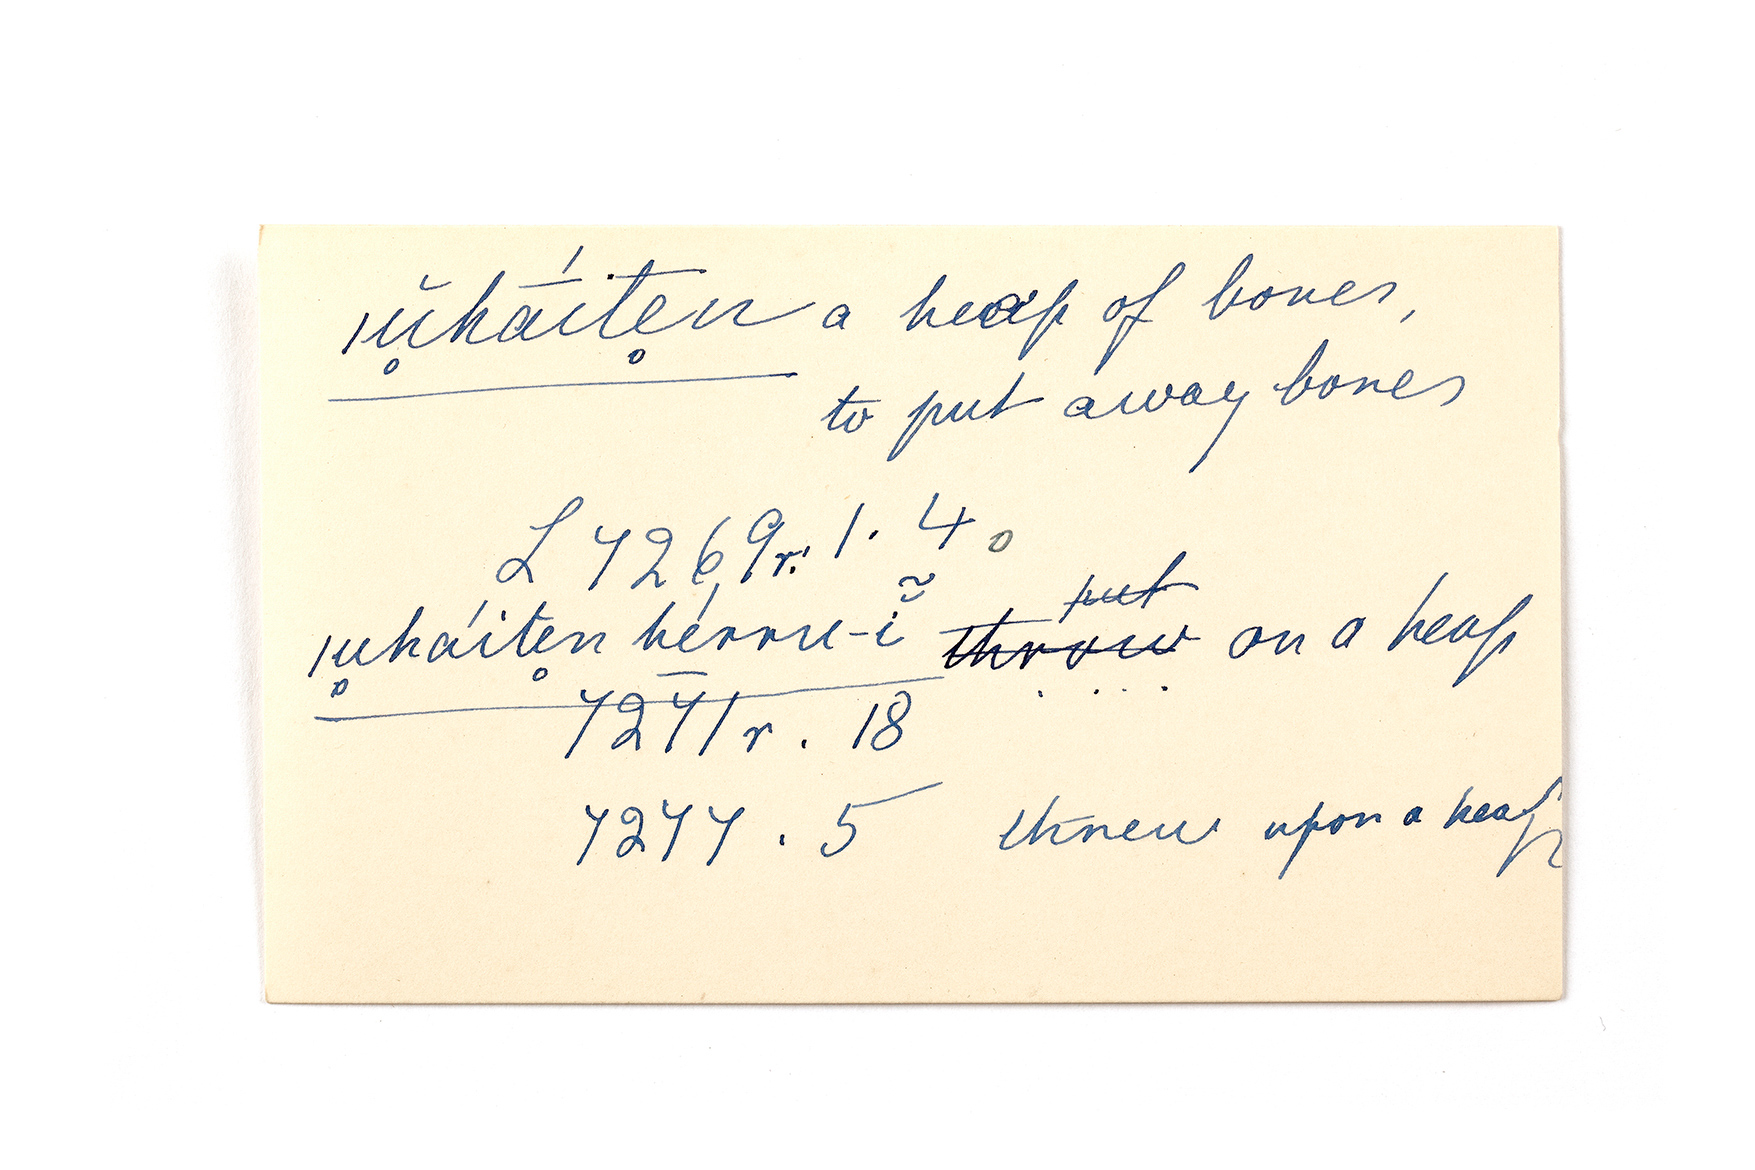 ıŭ̥hā́ite̥n a heap of bones,
to put away bones
L 7269r.' 1. 4.
ıu̥háite̥n hérru-ĩ ~~throw~~ ~~put~~ on a heap
7271r. 18
7277. 5 threw upon a heap